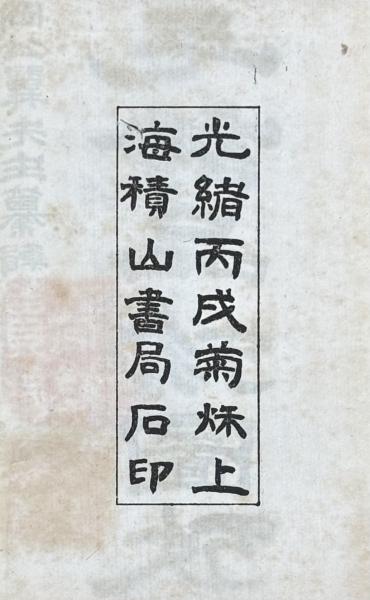 光緒丙戌菊秌上
海積山書局石印